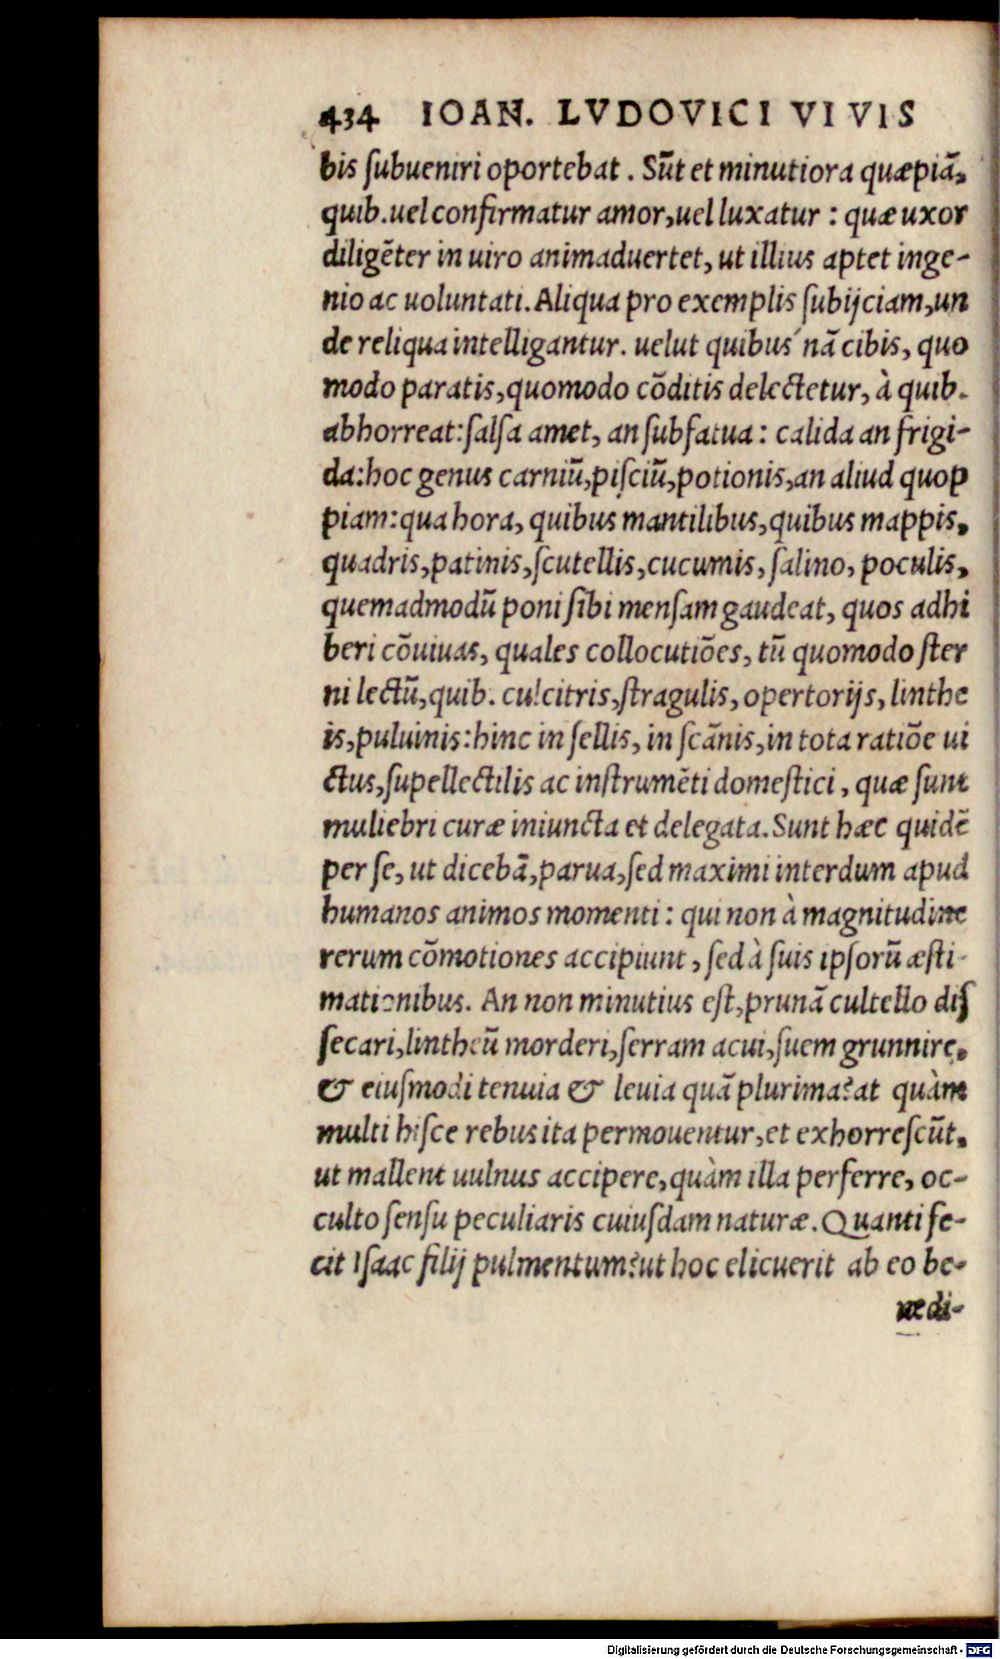 434 IOAN. LVDOVICI VIVIS
bis ſubueniri oportebat. Sūt et minutiora quæpiā,
quib. uel confirmatur amor, uel luxatur: quæ uxor
diligēter in uiro animaduertet, ut illius aptet inge-
nio ac uoluntati. Aliqua pro exemplis ſubijciam, un
de reliqua intelligantur. uelut quibus´nā cibis, quo
modo paratis, quomodo cōditis delectetur, à quib.
abhorreat: ſalſa amet, an ſubfatua: calida an frigi-
da: hoc genus carniū, piſciū, potionis, an aliud quop
piam: qua hora, quibus mantilibus, quibus mappis,
quadris, patinis, ſcutellis, cucumis, ſalino, poculis,
quemadmodū poni ſibi menſam gaudeat, quos adhi
beri cōuiuas, quales collocutiōes, tū quomodo ſter
ni lectū, quib. culcitris, ſtragulis, opertorijs, linthe
is, puluinis: hinc in ſellis, in ſcānis, in tota ratiōe ui
ctus, ſupellectilis ac inſtrumēti domeſtici, quæ ſunt
muliebri curæ iniuncta et delegata. Sunt hæc quidē
per ſe, ut dicebā, parua, ſed maximi interdum apud
humanos animos momenti: qui non à magnitudine
rerum cōmotiones accipiunt, ſed à ſuis ipſorū æſti-
mationibus. An non minutius eſt, prunā cultello diſ
ſecari, lintheū morderi, ſerram acui, ſuem grunnire,
& eiuſmodi tenuia & leuia quā plurima? at quàm
multi hiſce rebus ita permouentur, et exhorreſcūt,
ut mallent uulnus accipere, quàm illa perferre, oc-
culto ſenſu peculiaris cuiuſdam naturæ. Quanti fe-
cit Iſaac filij pulmentum? ut hoc elicuerit ab eo be-
nedi-
Digitalisierung gefördert durch die Deutsche Forschungsgemeinschaft - DFG